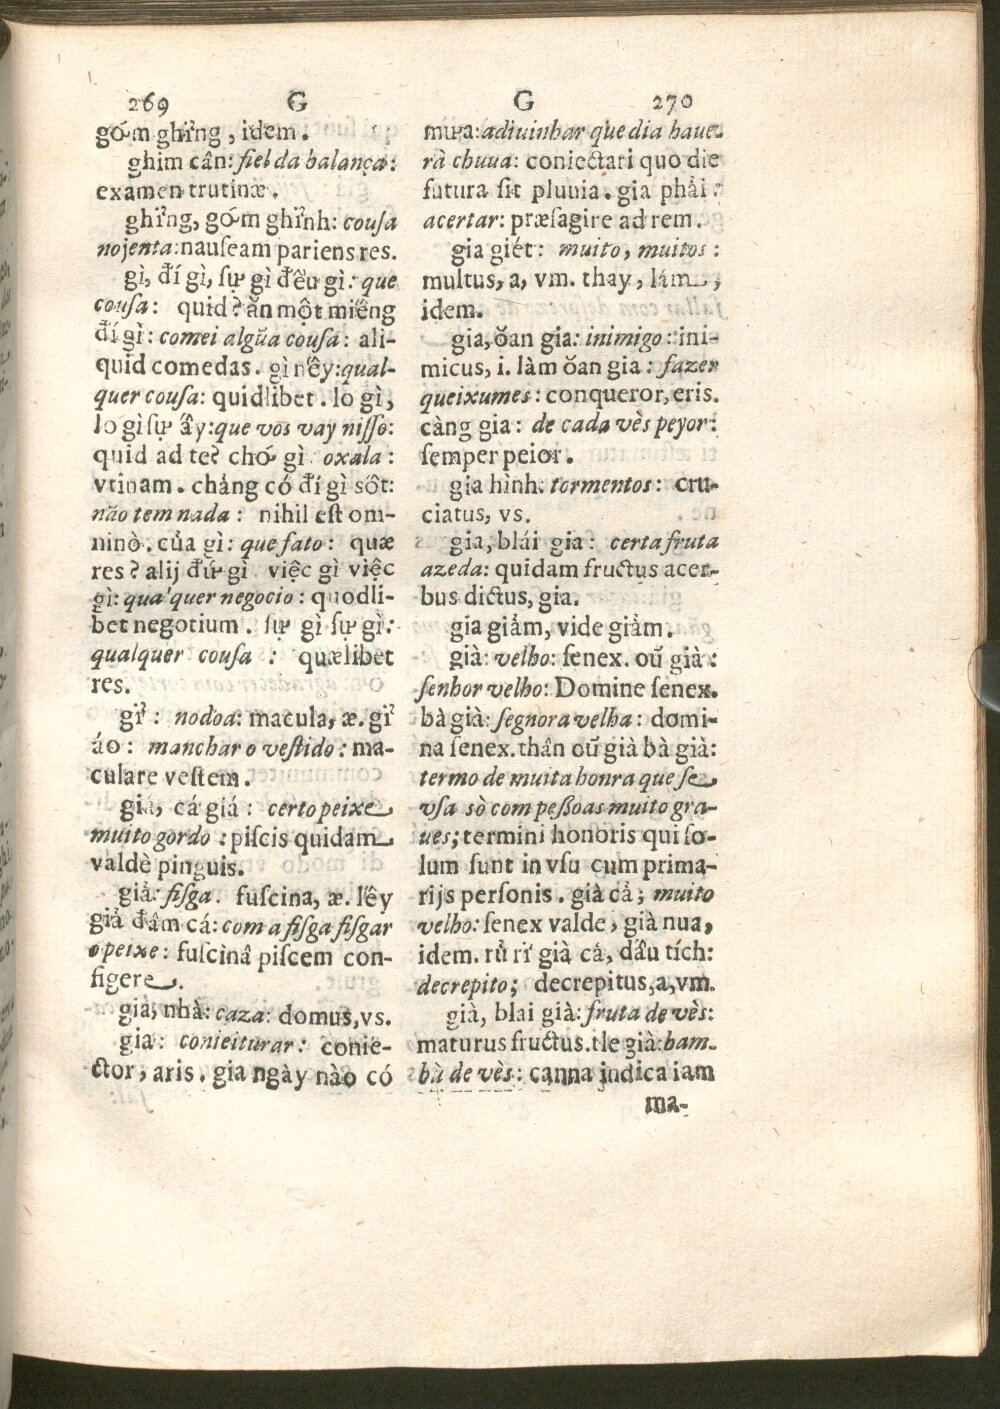 269 G
gớm ghỉng, idem.
ghim cân: fiel da balança:
examen trutinæ.
ghỉng, gớm ghỉnh: cousa
nojenta: nauseam pariens res.
gì, đí gì, sự gì đều gì: que
cousa: quid? ăn một miếng
đí gì: comei algũa cousa: ali-
quid comedas. gì nếy: qual-
quer cousa: quidlibet. lo gì,
lo gì sự ấy: que vos vay nisso:
quid ad te? chớ gì oxala:
vtinam. chảng có đí gì sốt:
não tem nada: nihil est om-
ninò. của gì: que fato: quæ
res? alij đứ gì. việc gì việc
gì: qualquer negocio: quodli-
bet negotium. sự gì sự gì:
qualquer cousa: quælibet
res.
gỉ: nodoa: macula, æ. gỉ
áo: manchar o vestido: ma-
culare vestem.
giá, cá giá: certo peixe
muito gordo: piscis quidam
valdè pinguis.
giả: fisga. fuscina, æ. lếy
giả đâm cá: com a fisga fisgar
o peixe: fuscinâ piscem con-
figere.
gia, nhà: caza: domus, vs.
gia: conieiturar: conie-
ctor, aris. gia ngày nào có
G 270
mưa: adiuinhar que dia haue-
rà chuua: coniectari quo die
futura sit pluuia. gia phải:
acertar: præsagire ad rem.
gia giét: muito, muitos:
multus, a, vm. thay, lám,
idem.
gia, ŏan gia: inimigo: ini-
micus, i. làm ŏan gia: fazer
queixumes: conqueror, eris.
càng gia: de cada vès peyor:
semper peior.
gia hình: tormentos: cru-
ciatus, vs.
gia, blái gia: certa fruta
azeda: quidam fructus acer-
bus dictus, gia.
gia giảm, vide giảm.
già: velho: senex. oũ già:
senhor velho: Domine senex.
bà già: segnora velha: domi-
na senex. thân oũ già bà già:
termo de muita honra que se
vsa sò com peßoas muito gra-
ues; termini honoris qui so-
lum sunt in vsu cum prima-
rijs personis. già cả; muito
velho: senex valde, già nua,
idem. rủ rỉ già cả, dấu tích:
decrepito; decrepitus, a, vm.
già, blai già: fruta de vès:
maturus fructus. tle già: bam-
bù de vès: canna indica iam
ma-